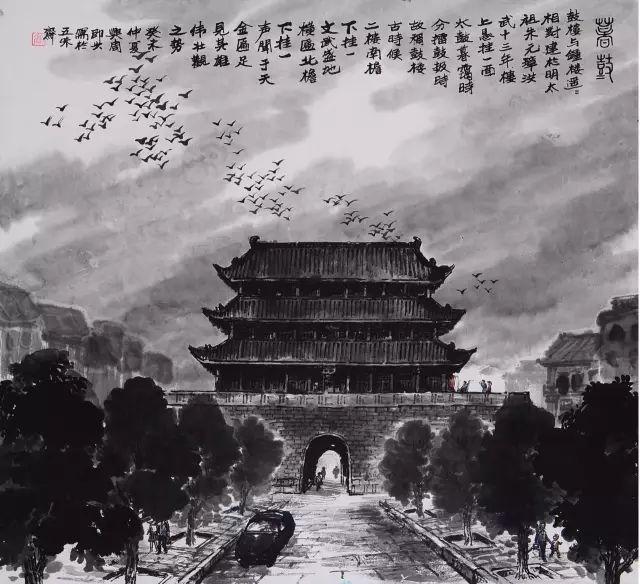 暮鼓
鼓楼与鐘樓遥〻
相對建於明太
祖朱元璋洪
武十三年樓
上悬挂一面
太鼓暮靄時
分擂鼓报時
故稱鼓楼
古時候
二樓南檐
下挂一
文武盛地
樓匾北檐
下挂一
声聞于天
金匾足
見其雄
伟壮觀
之势
癸未
仲夏
即兴
寫於
五味
齋